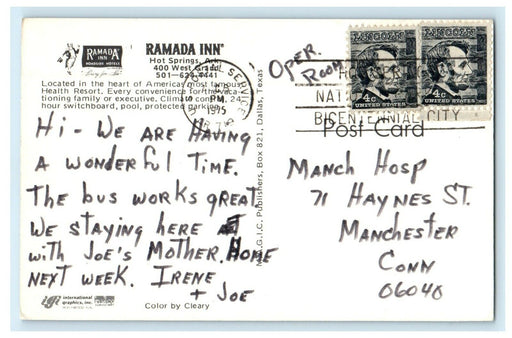 RAMADA INN
ROADSIDE HOTELS
RAMADA INN®
Hot Springs, Ark.
400 West Grand
501—624-4441
Located in the heart of America's most famous
Health Resort. Every convenience for the vaca-
tioning family or executive. Climate control, 24
hour switchboard, pool, protected parking.
Hi - We are Having
a wonderful Time.
The bus works great
We staying here
with Joe's Mother. Home
next week. Irene
+ Joe
international
graphics, inc.
Color by Cleary
M.A.G.I.C. Publishers, Box 821, Dallas, Texas
SERVICE
PM
1975
Oper.
Room
LINCOLN
4c
UNITED STATES
LINCOLN
4c
UNITED STATES
BICENTENNIAL CITY
Post Card
Manch Hosp
71 Haynes St.
Manchester
Conn
06040